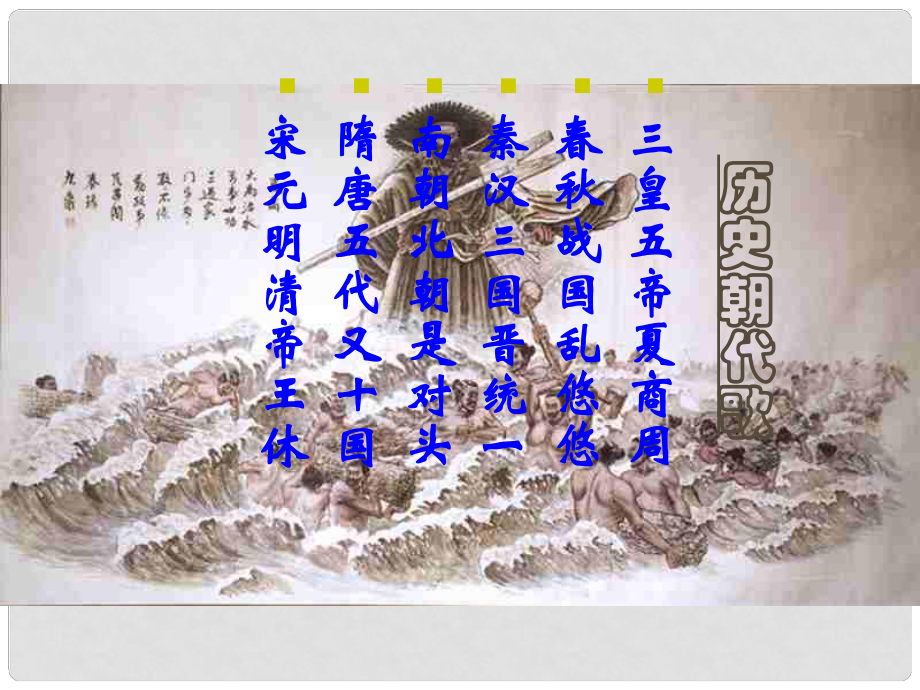 历史朝代歌
三皇五帝夏商周
春秋战国乱悠悠
秦汉三国晋统一
南朝北朝是对头
隋唐五代又十国
宋元明清帝王休